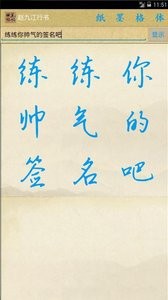 11:51
赵九江行书 纸 墨 格 体
练练你帅气的签名吧 显示
练 练 你
帅 气 的
签 名 吧